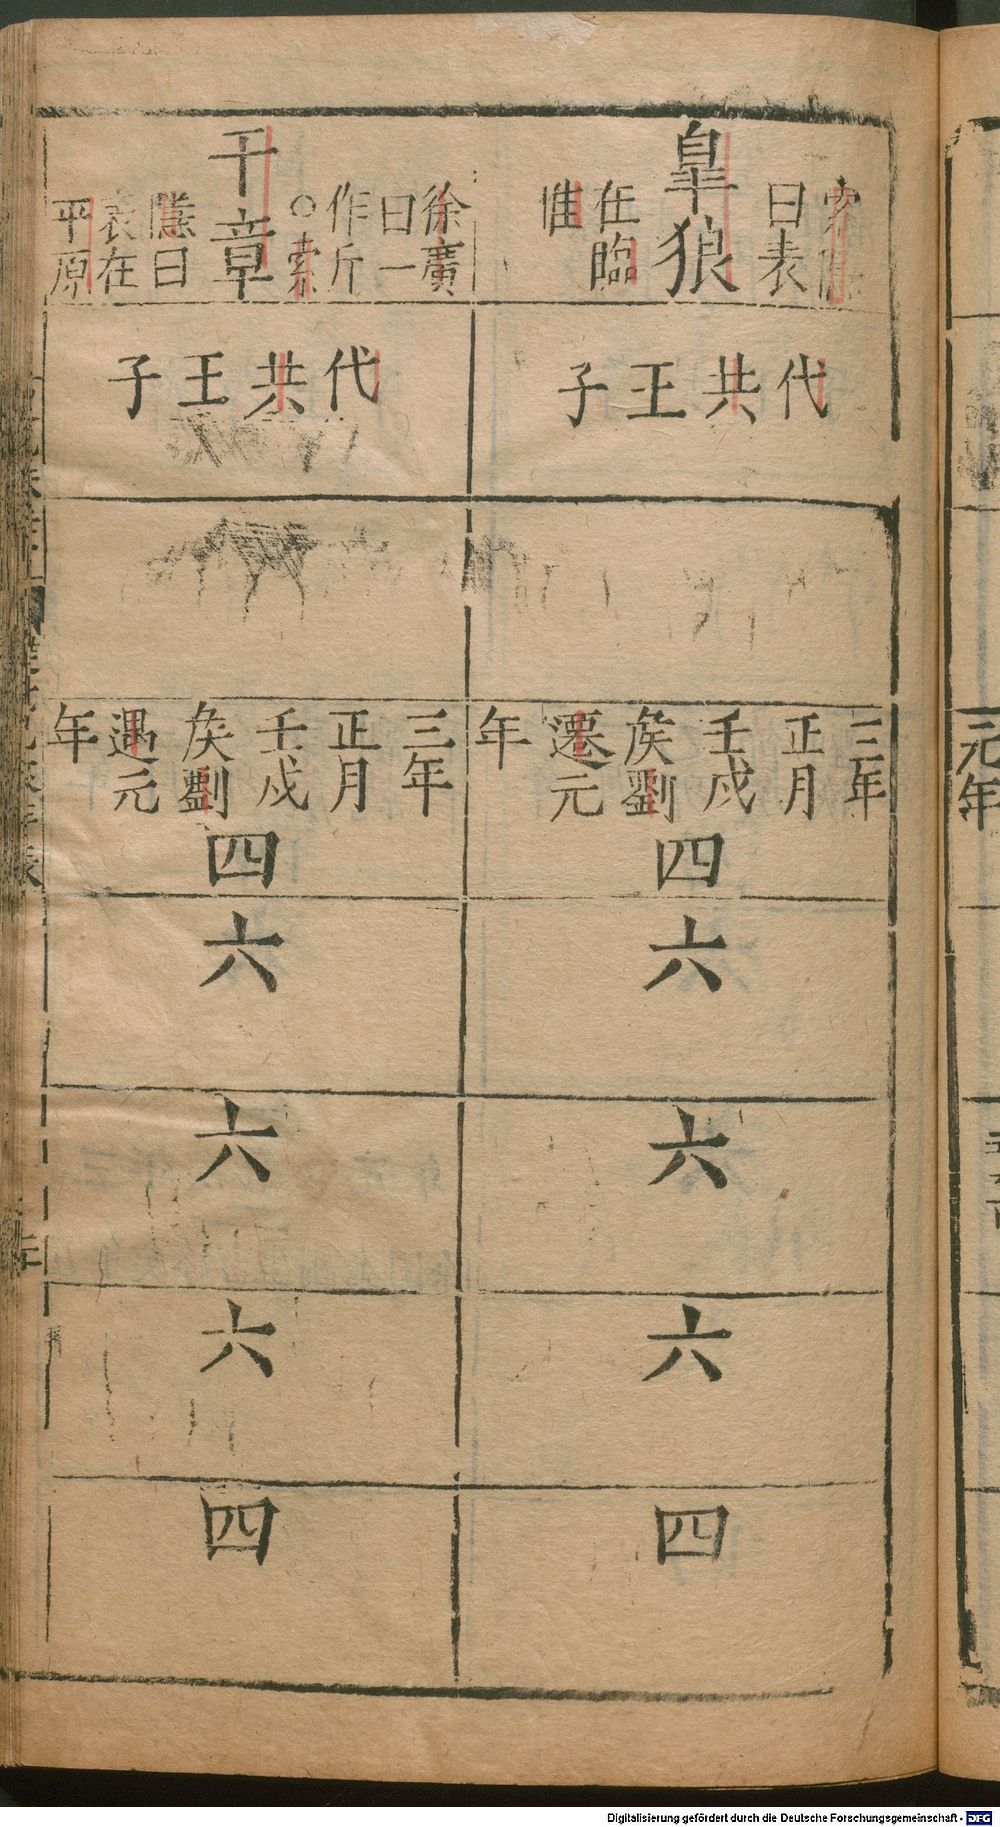 索隱
曰表
皐狼
在臨
淮
代共王子
三年
正月
壬戌
侯劉
遷元
年
四
六
六
六
四
徐廣
曰一
作斤
○索
干章
隱曰
表在
平原
代共王子
三年
正月
壬戌
侯劉
遇元
年
四
六
六
六
四
元年
Digitalisierung gefördert durch die Deutsche Forschungsgemeinschaft - DFG